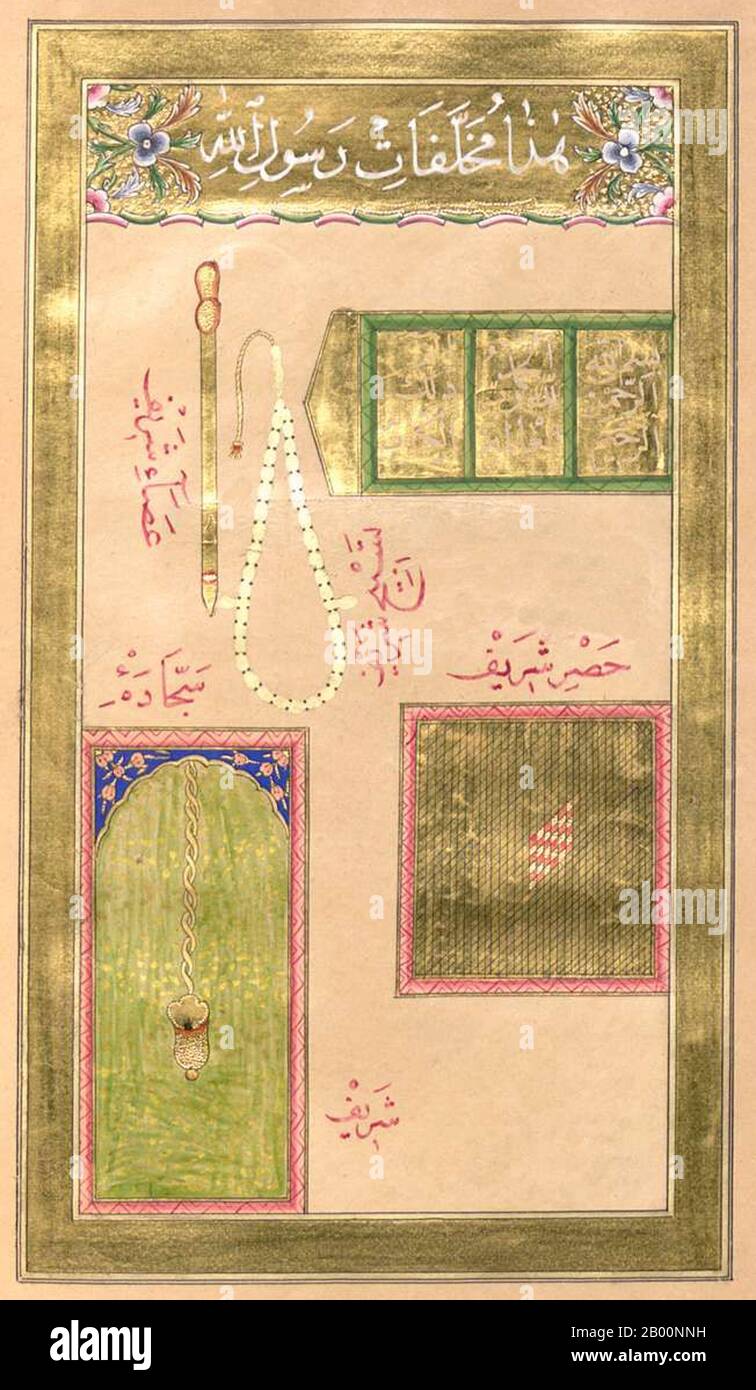 هٰذَا مُخَلَّفَاتِ رَسُولِ اللّٰهِ
عَصَاءِ شَرِيفْ
تَسْبِيحِ شَرِيفْ
حَصِيرِ شَرِيفْ
سَجَّادَهٔ
شَرِيفْ
alamy
Image ID: 2B00NNH
www.alamy.com